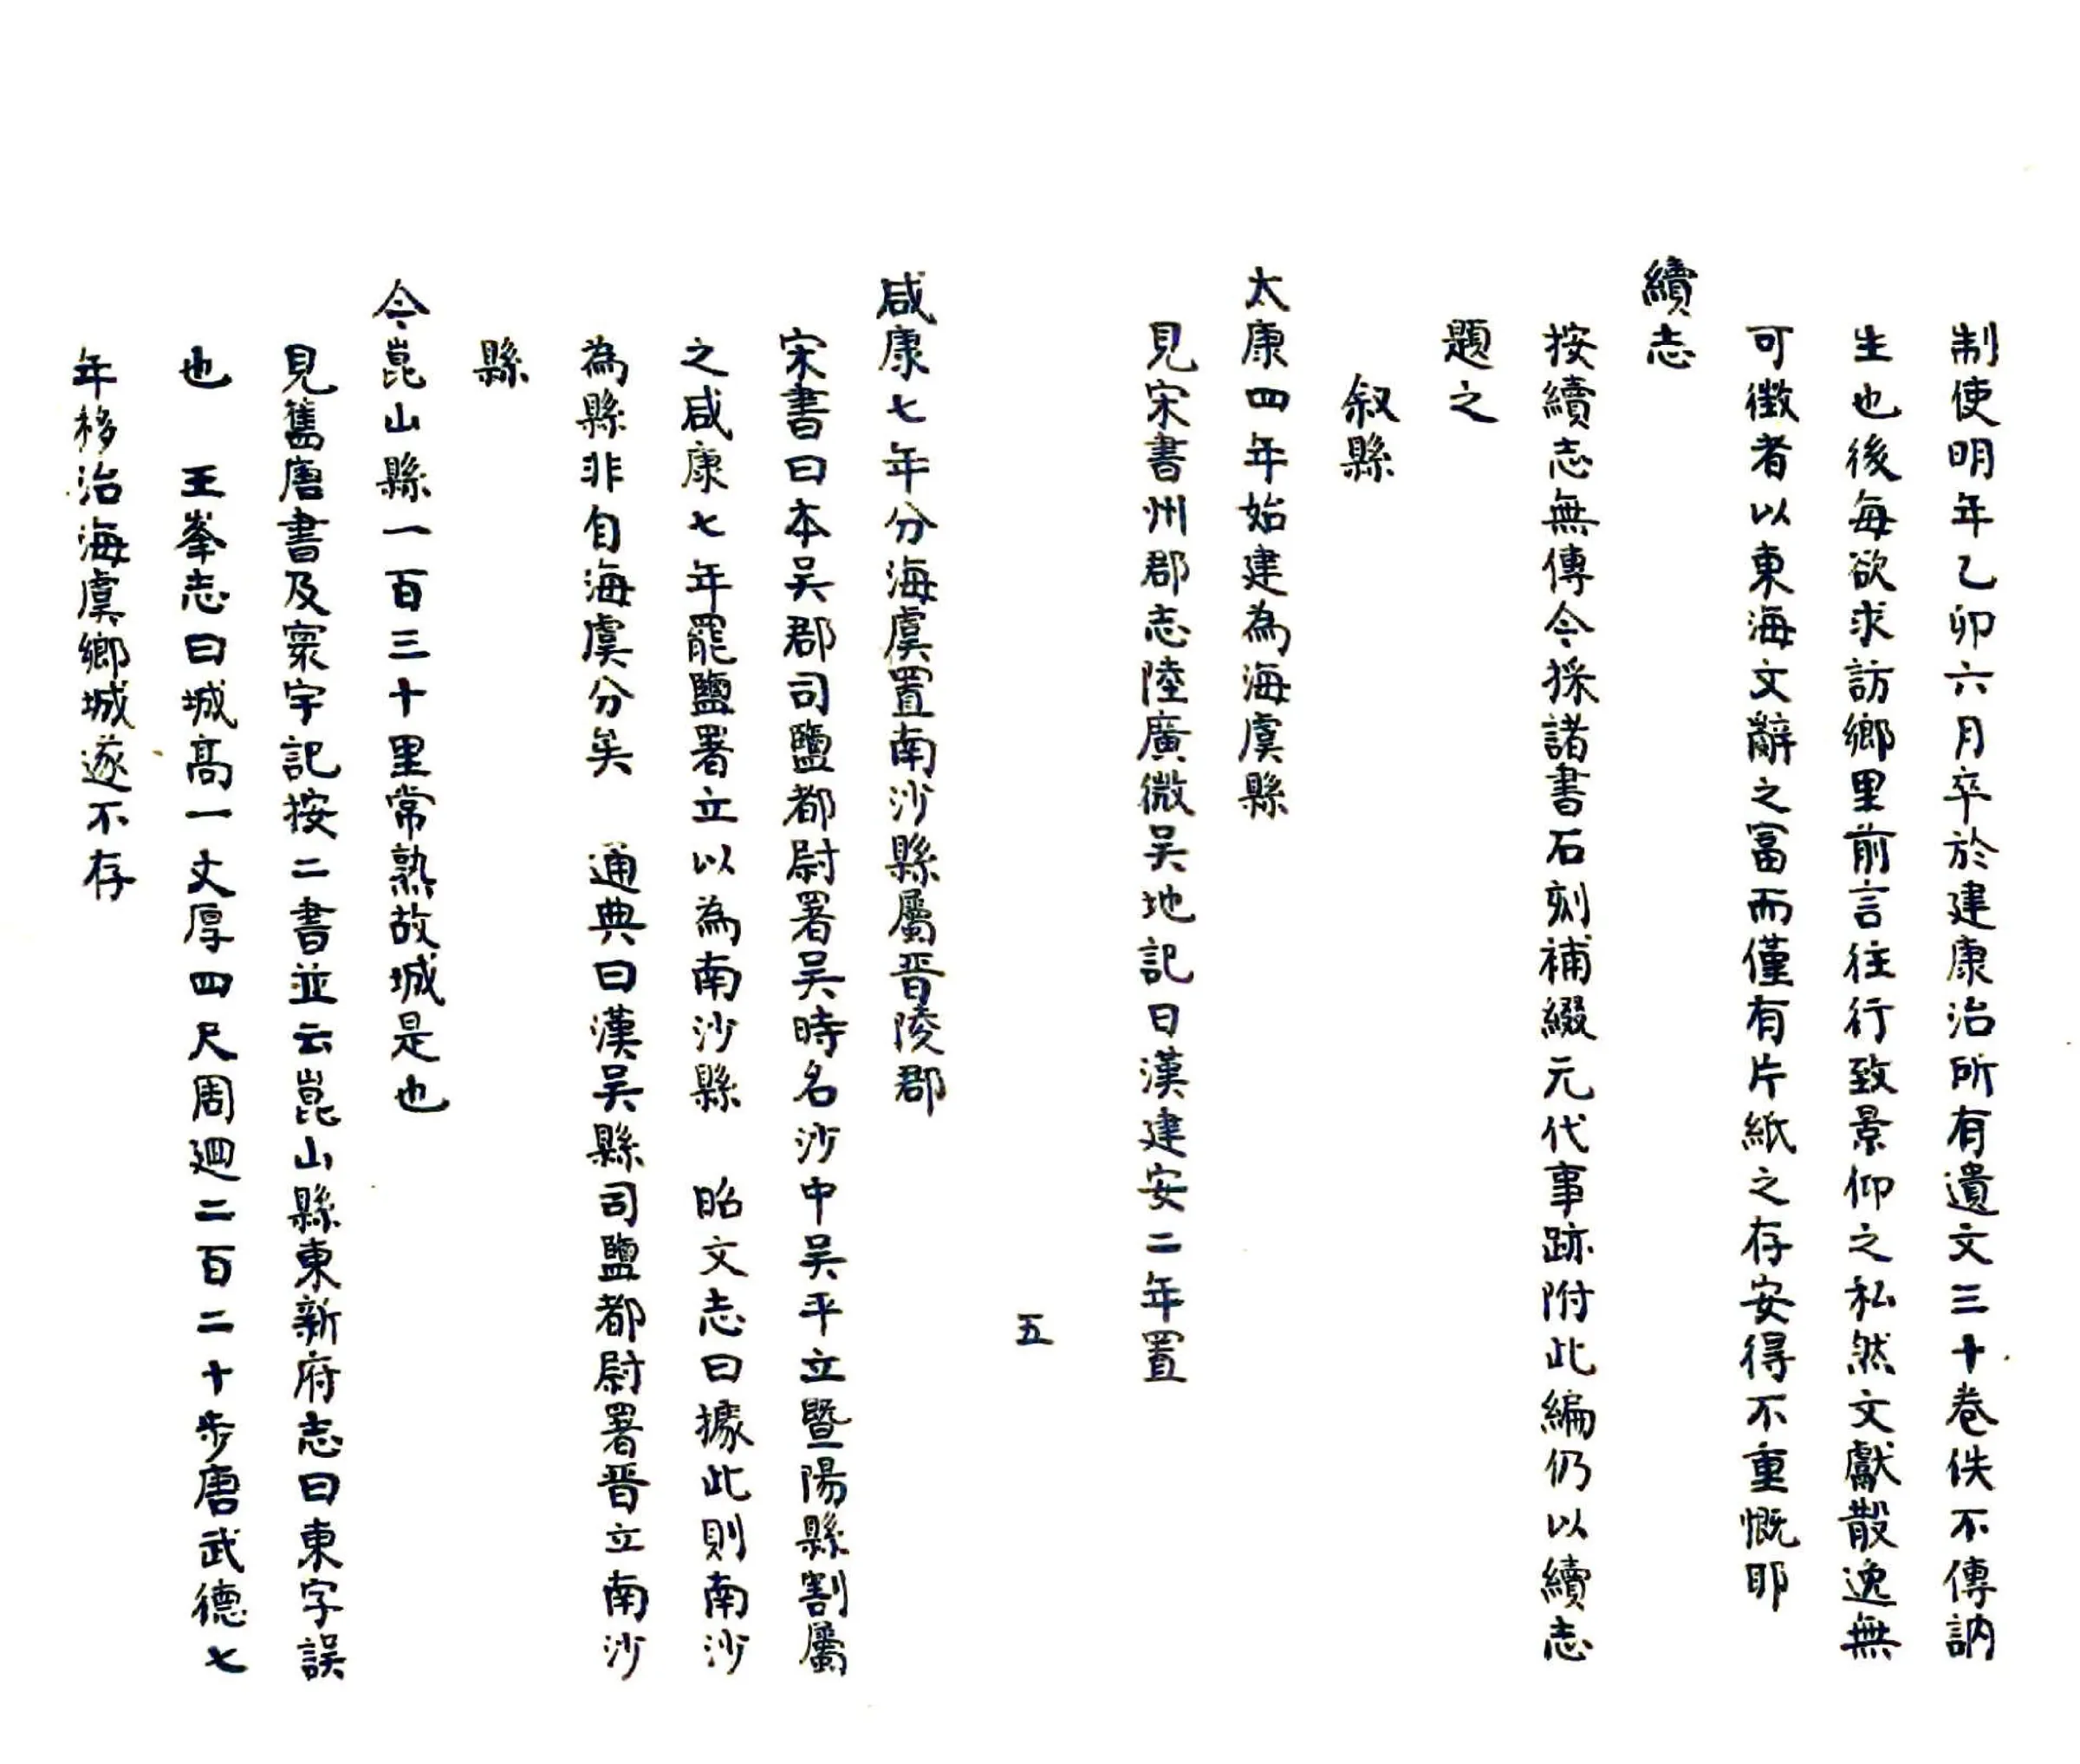 制使明年乙卯六月卒於建康治所有遺文三十卷佚不傳訥
生也後每欲求訪鄉里前言往行致景仰之私然文獻散逸無
可徵者以東海文辭之富而僅有片紙之存安得不重慨耶
續志
按續志無傳今採諸書石刻補綴元代事跡附此編仍以續志
題之
叙縣
太康四年始建為海虞縣
見宋書州郡志陸廣微吴地記曰漢建安二年置
五
咸康七年分海虞置南沙縣屬晉陵郡
宋書曰本吴郡司鹽都尉署吴時名沙中吴平立暨陽縣割屬
之咸康七年罷鹽署立以為南沙縣　昭文志曰據此則南沙
為縣非自海虞分矣　通典曰漢吴縣司鹽都尉署晉立南沙
縣
今崑山縣一百三十里常熟故城是也
見舊唐書及寰宇記按二書並云崑山縣東新府志曰東字誤
也　王峯志曰城高一丈厚四尺周迴二百二十步唐武德七
年移治海虞鄉城遂不存